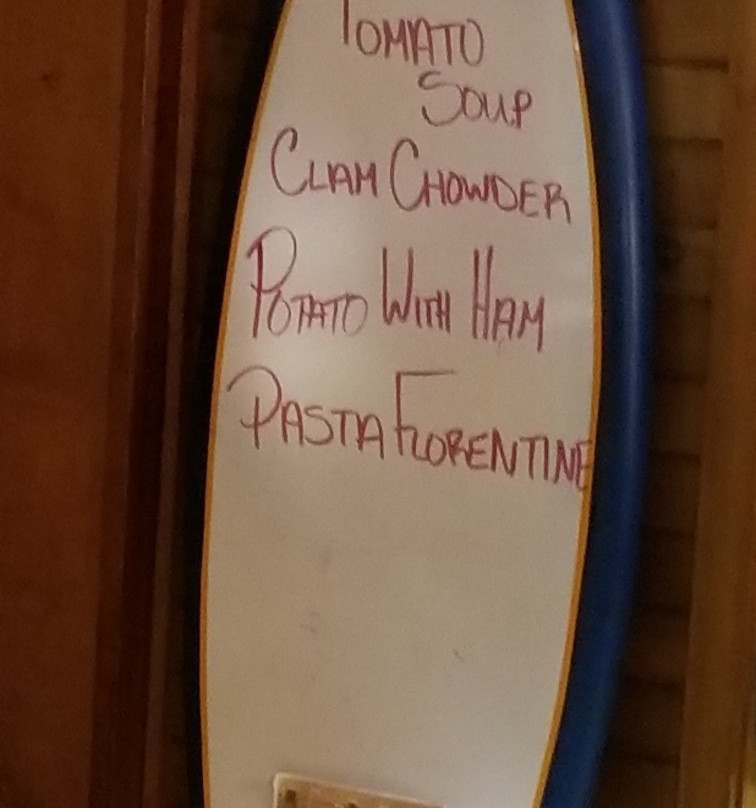 TOMATO
SOUP
CLAM CHOWDER
POTATO WITH HAM
PASTA FLORENTINE